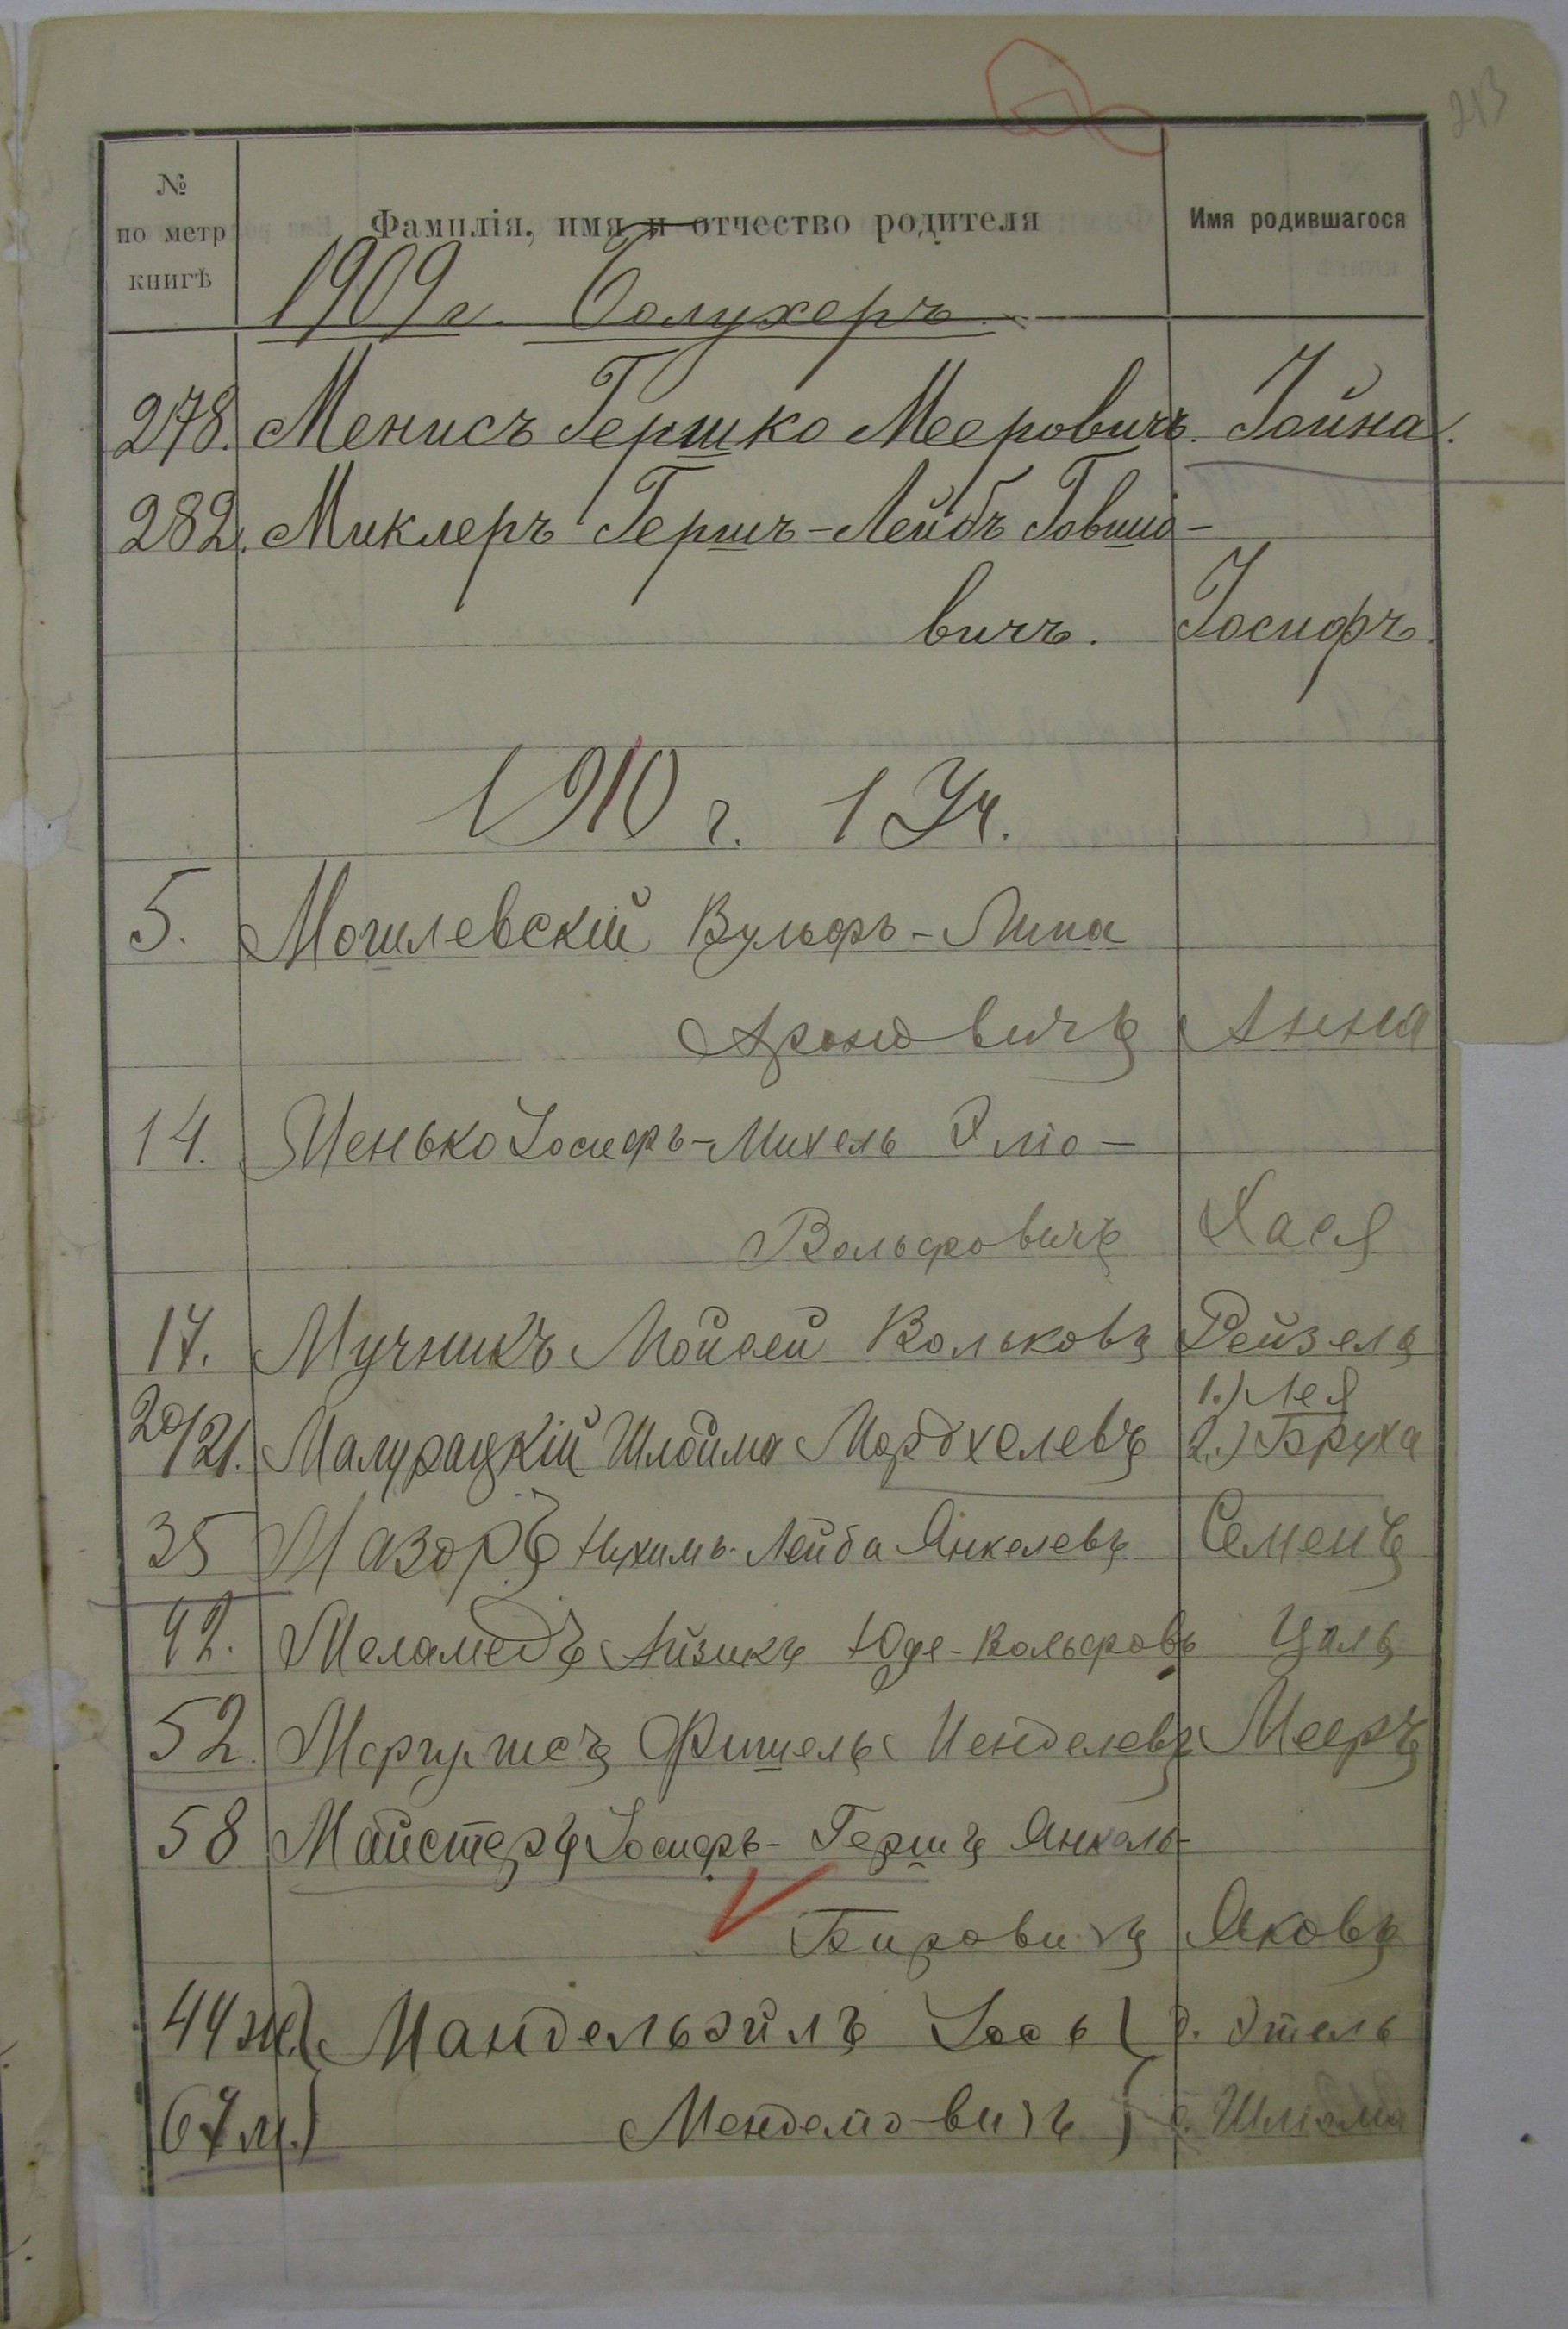 213
№ по метр книгѣ
Фамилія, имя и отчество родителя
Имя родившагося
1909 г. Болухеръ
278. Менисъ Гершко Мееровичъ. Іойна.
282. Миклеръ Гершъ-Лейбъ Говшіо-
вичъ. Іосифъ.
1910 г. 1 Уч.
5. Могилевскій Вульфъ-Липа
Ароновичъ Анна
14. Менько Іосифъ-Михель Эліо-
Вольфовичъ Хася
17. Мучникъ Мойсей Вольковъ Рейзель
20/21. Малурацкій Шлойма Мордхелевъ 1.) Лея 2.) Бруха
35 Мазоръ Нухимъ-Лейба Янкелевъ Семенъ
42. Меламедъ Айзикъ Юде-Вольфовъ Цаль
52. Маргулисъ Фишель Менделевъ Мееръ
58 Майстеръ Іосифъ-Гершъ Янкель-
Бировичъ Яковъ
44 ж.) Мандельэйлъ Іось д. Этель
67 м.) Менделіовичъ с. Шлиома